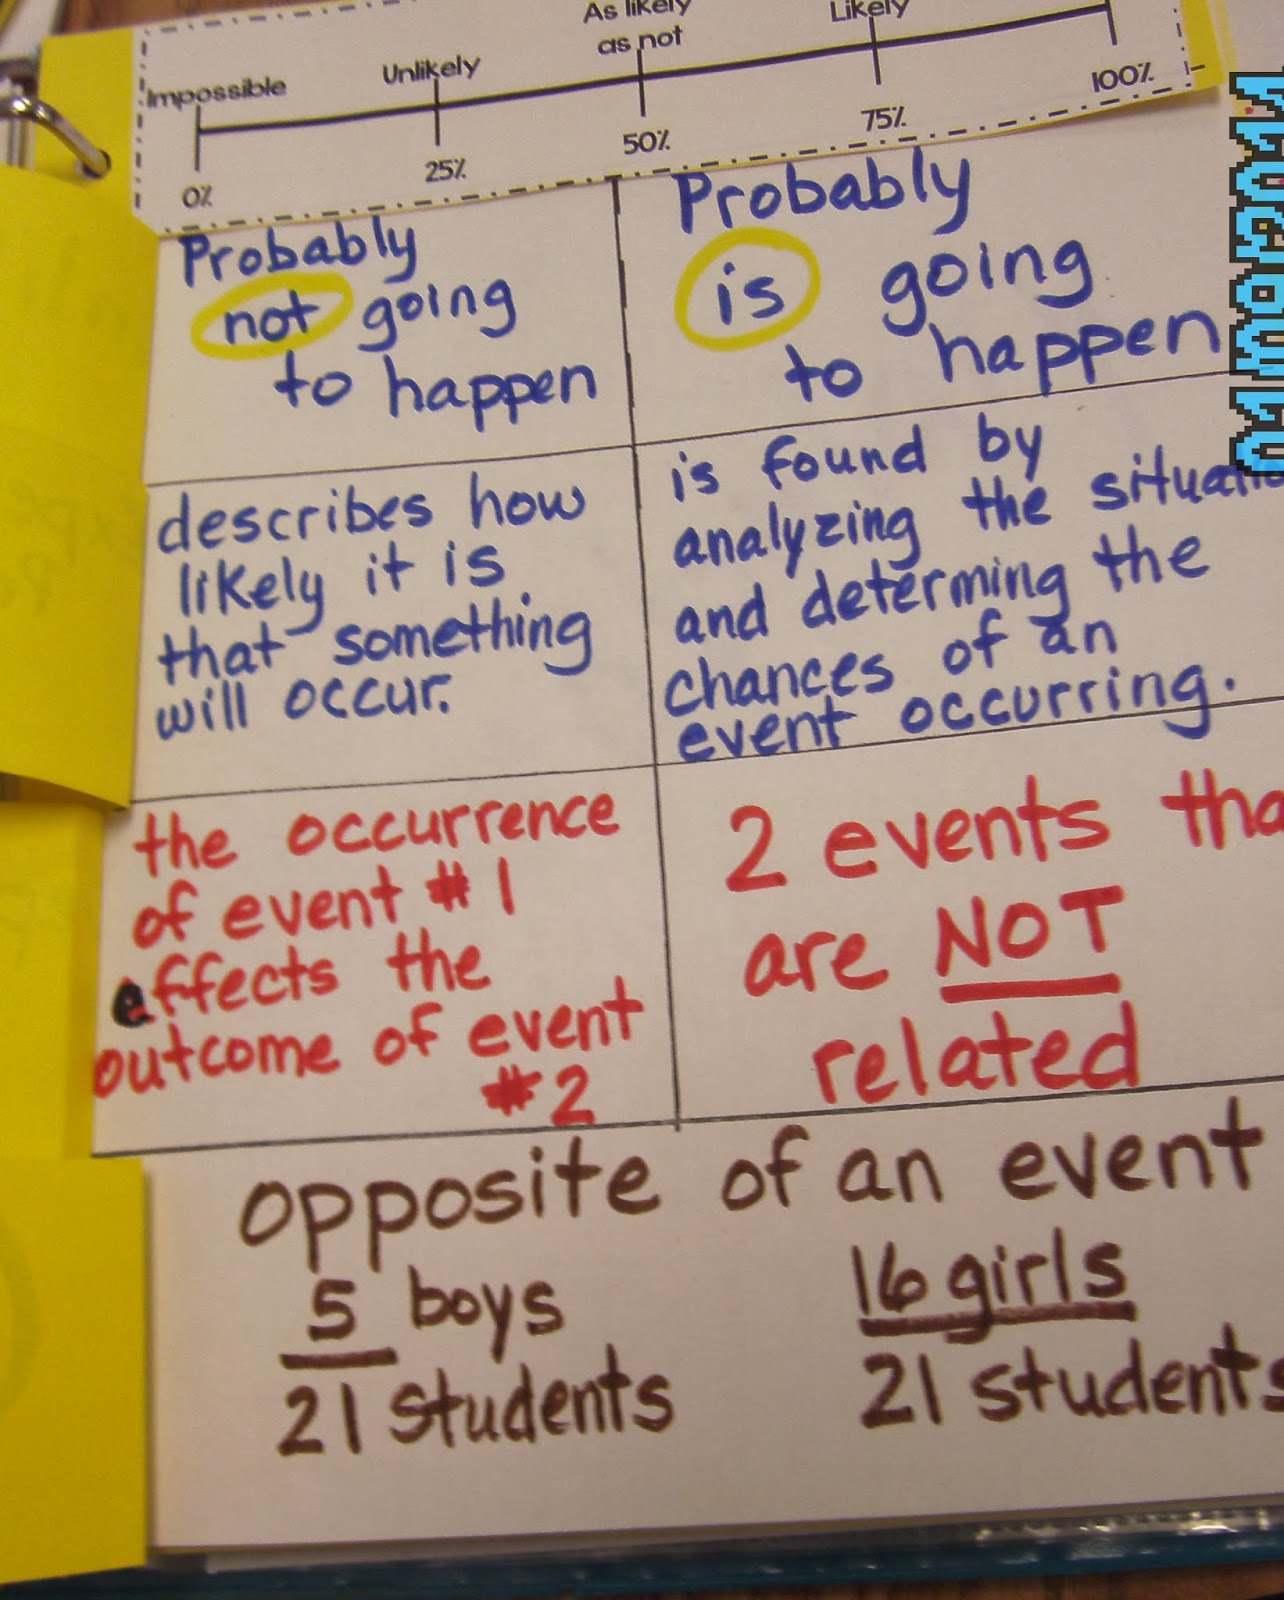 As likely
as not
Likely
Unlikely
Impossible
0%
25%
50%
75%
100%
Probably
not going
to happen
Probably
is going
to happen
describes how
likely it is
that something
will occur.
is found by
analyzing the
and determing the
chances of an
event occurring.
the occurrence
of event #1
effects the
outcome of event
#2
2 events
are NOT
related
opposite of an event
5 boys
21 students
16 girls
21 students